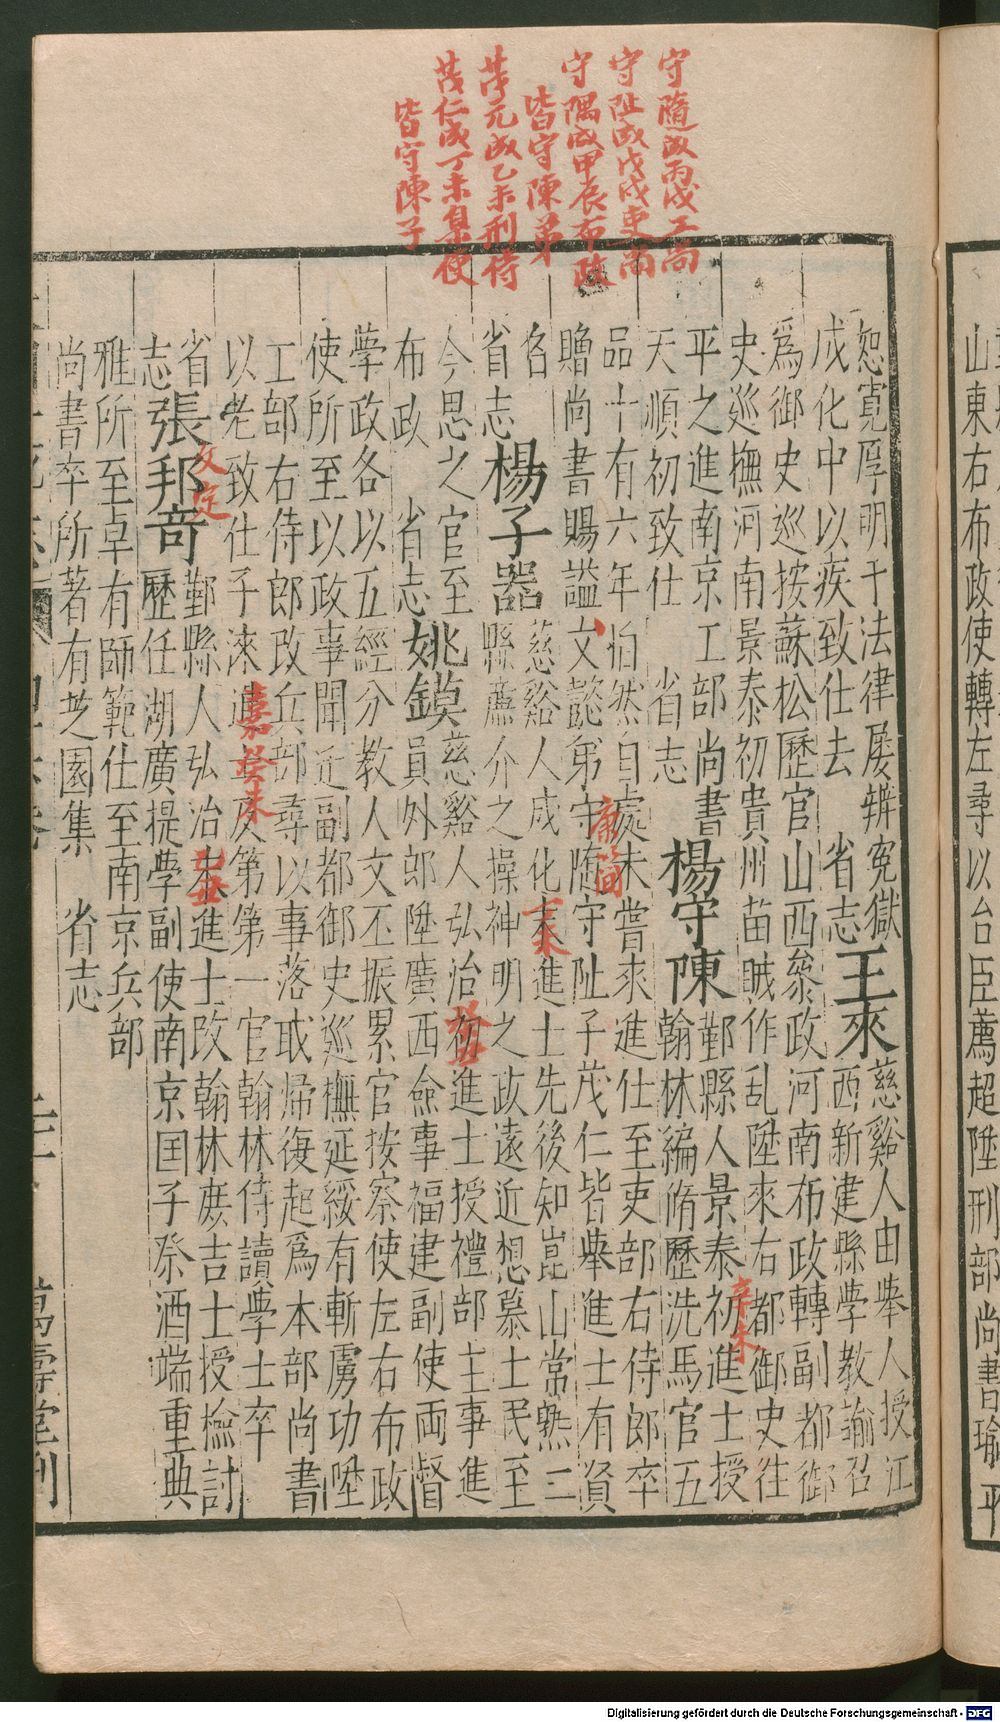 守隨成丙戌工尚
守阯成戊戌吏尚
守隅成甲辰布政
皆守陳弟
茂元成乙未刑侍
茂仁成丁未臬使
皆守陳子
恕寛厚明于法律屡辨寃獄　王來　慈谿人由舉人授江
成化中以疾致仕去　省志　西新建縣學教諭召
爲御史巡按蘇松歷官山西叅政河南布政轉副都御
史巡撫河南景泰初貴州苗賊作乱陞來右都御史往
平之進南京工部尚書　楊守陳　鄞縣人景泰初進士授
辛未
天順初致仕　省志　翰林編脩歷洗馬官五
品十有六年怕然自處未嘗求進仕至吏部右侍郎卒
贈尚書賜謚文懿弟守隨守阯子茂仁皆舉進士有資
康簡
名　慈谿人成化末進士先後知崑山常熟二
丁未
省志　楊子器　縣廉介之操神明之政遠近想慕士民至
今思之官至　慈谿人弘治初進士授禮部主事進
癸丑
布政　省志　姚鏌　員外郎陞廣西僉事福建副使両督
學政各以五經分教人文丕振累官按察使左右布政
使所至以政事聞近副都御史巡撫延綏有斬虜功陞
工部右侍郎改兵部尋以事落取歸復起爲本部尚書
以老致仕子淶進士及第第一官翰林侍讀學士卒
嘉癸未
省志　張邦竒　鄞縣人弘治末進士改翰林庶吉士授檢討
文定
乙丑
歷任湖廣提學副使南京国子祭酒端重典
雅所至卓有師範仕至南京兵部
尚書卒所著有芝園集　省志
萬壽堂刊
山東右布政使轉左尋以台臣薦超陞刑部尚書瑜平
Digitalisierung gefördert durch die Deutsche Forschungsgemeinschaft - DFG